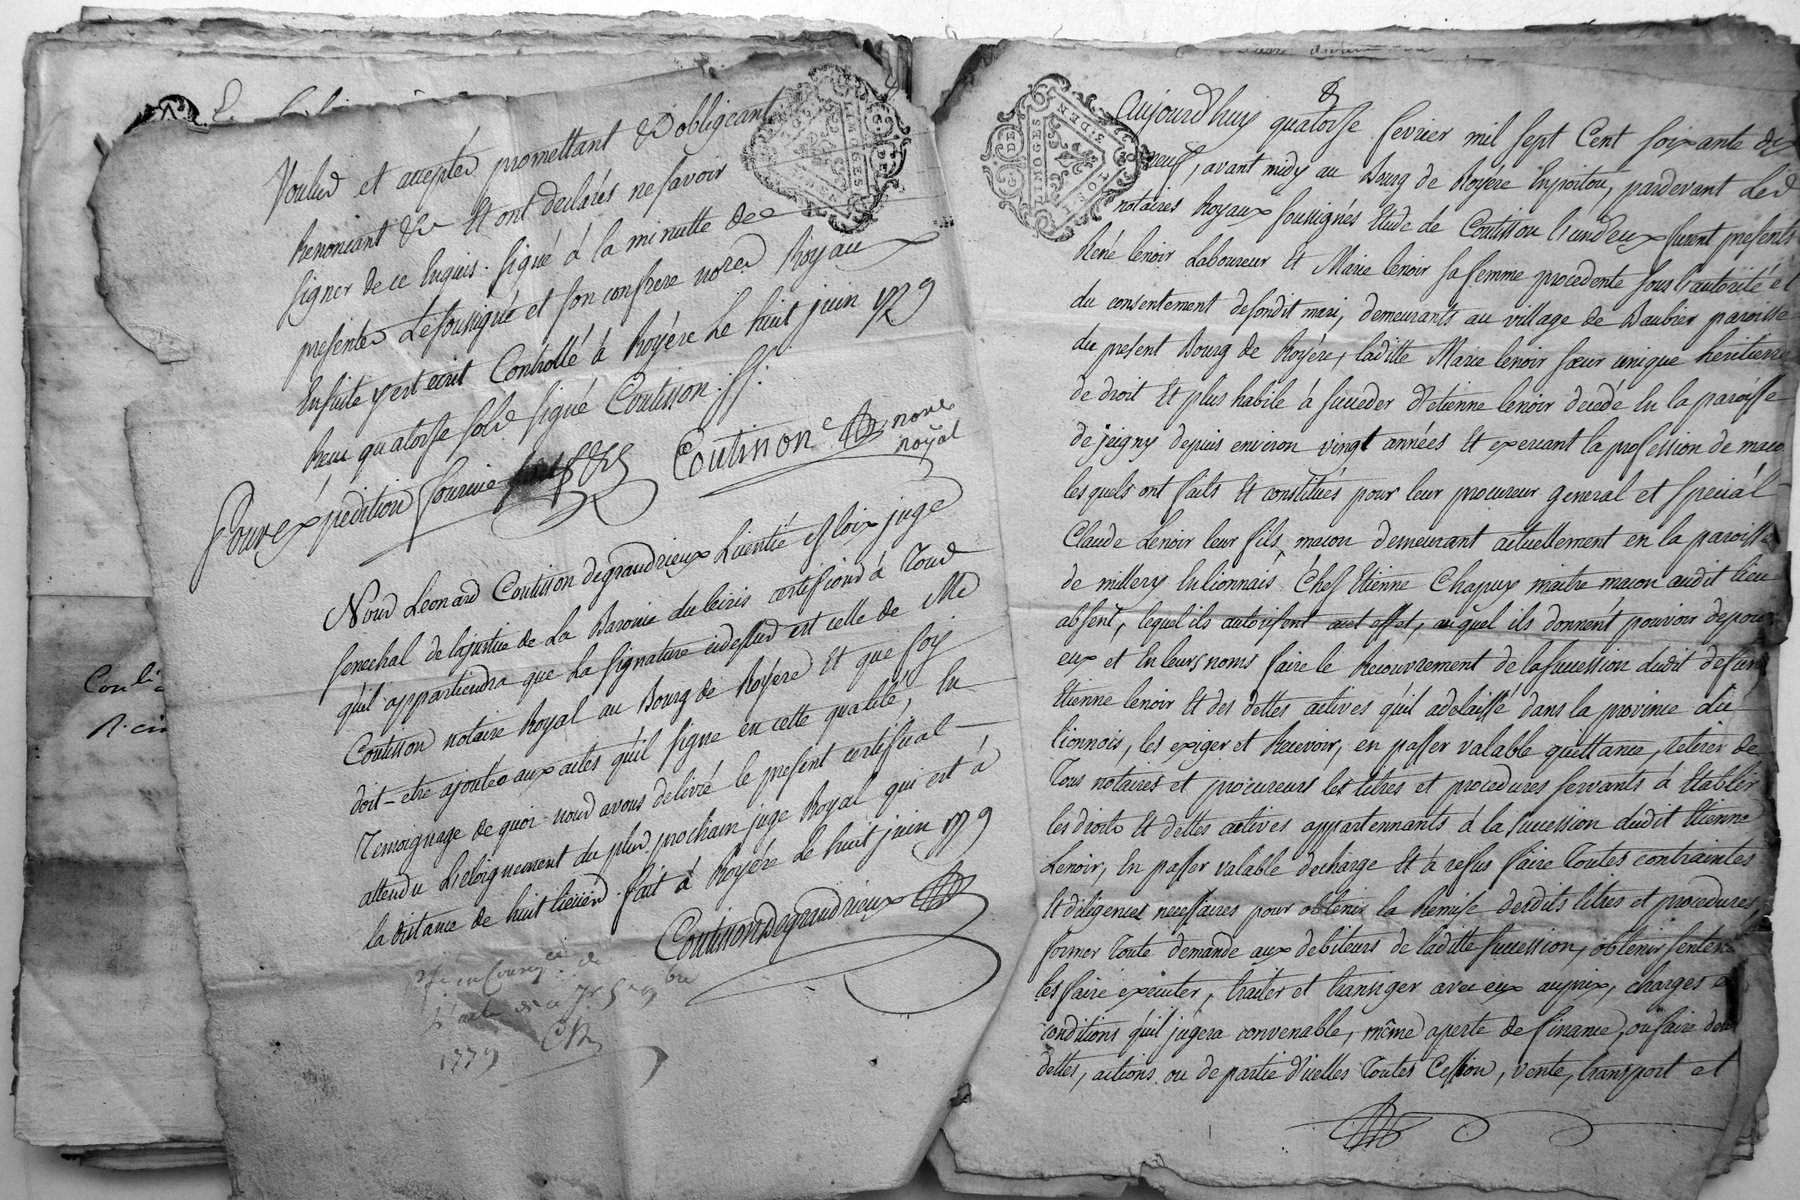 Voulus et acceptés promettant &c obligeant
Renonciant &c Et ont declarés ne savoir
signer de ce Enquis. signé à la minutte des
presentes Le soussigné et son confrere no.res Royaux
Ensuite y est ecrit Controllé à Royére Le huit juin 1779
Recu quatorse sols signé Coutisson
Pour Expedition fournie
Coutisson no.re royal
Nous Leonard Coutisson degrandrieux Licentié es loix juge
senechal de la justice de La Baronie du leiris certifions à Tous
qu'il appartiendra que La signature cidessus est celle de Me
Coutisson notaire Royal au Bourg de Royére Et que foy
doit-etre ajoutée aux actes qu'il signe en cette qualité, En
Temoignage de quoi nous avons delivré le present certificat
attendu L'eloignement du plus prochain juge Royal qui est à
la distance de huit lieües. fait à Royére Le huit juin 1779
Coutisson Degrandrieux
1779
G. DE LIMOGES
2 DEN
Aujourd'huy quatorse fevrier mil sept Cent soixante dix
neuf, avant midy au Bourg de Royere Enpoitou, pardevant Les
notaires Royaux soussignés Etude de Coutisson l'un d'eux furent presents
René lenoir Laboureur Et Marie lenoir sa femme procedente sous l'autorité et
du consentement desondit mari, demeurants au village de Baubier paroisse
du present Bourg de Royére, laditte Marie lenoir sœur unique heritiere
de droit Et plus habile à succeder d'Etienne lenoir decedé En la paroisse
de jeigny depuis environ vingt années Et exercant la profession de macon
lesquels ont faits Et constitués pour leur procureur general et special
Claude Lenoir leur fils, macon demeurant actuellement en la paroisse
de millery En lionnais Chés Etienne Chapuy maitre macon audit lieu
absent, lequel ils autorisent a cet effet, auquel ils donnent pouvoir depour
eux et En leurs noms faire le Recouvrement de la succession dudit defunt
Etienne lenoir Et des dettes actives qu'il adelaissé dans la province du
lionnois, les exiger et Recevoir, en passer valable quittance, retirer de
Tous notaires et procureurs les titres et procedures servants à Etablir
les droits Et dettes actives appartennants à la succession dudit Etienne
Lenoir, En passer valable decharge Et à refus faire Toutes contraintes
Et diligences necessaires pour obtenir la Remise desdits titres et procedures,
former Toute demande aux debiteurs de laditte succession, obtenir sentences
les faire executer, traiter et transiger avec eux auprix, charges et
conditions qu'il jugera convenable, même aperte de finance, ou faire desd
dettes, actions ou de partie d'icelles Toutes Cession, vente, transport et